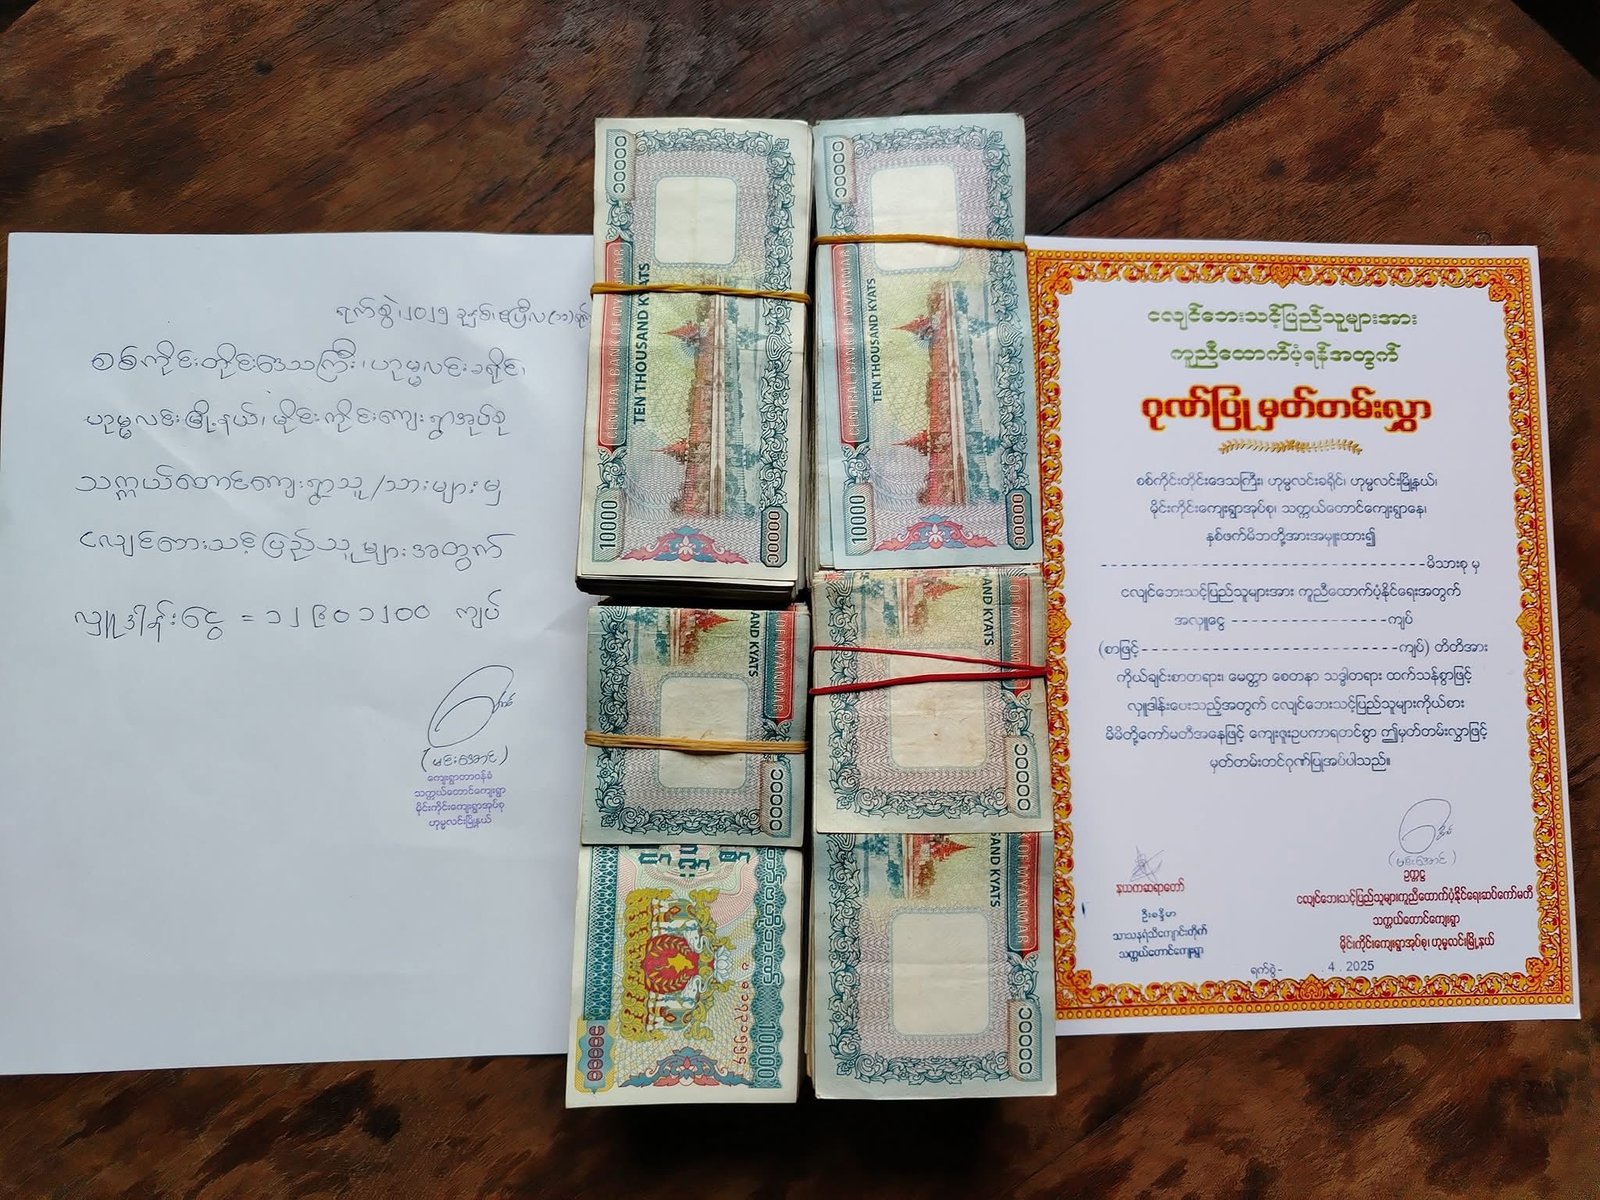 ရက်စွဲ၊၂၀၂၅ ခုနှစ်၊ဧပြီလ
စစ်ကိုင်းတိုင်းဒေသကြီး၊ဟုမ္မလင်းခရိုင်၊
ဟုမ္မလင်းမြို့နယ်၊မိုင်းကိုင်းကျေးရွာအုပ်စု
သက္ကယ်တောင်ကျေးရွာသူ/သားများမှ
ငလျင်ဘေးသင့်ပြည်သူများအတွက်
လှူဒါန်းငွေ = ၁၂၉၀၁၂၀၀ ကျပ်
(မင်းအောင်)
ကျေးရွာတာဝန်ခံ
သက္ကယ်တောင်ကျေးရွာ
မိုင်းကိုင်းကျေးရွာအုပ်စု
ဟုမ္မလင်းမြို့နယ်
၁၀၀၀၀
CENTRAL BANK OF MYANMAR
TEN THOUSAND KYATS
10000
၁၀၀၀၀
၁၀၀၀၀
CENTRAL BANK OF MYANMAR
TEN THOUSAND KYATS
10000
၁၀၀၀၀
AND KYATS
၁၀၀၀၀
AND KYATS
၁၀၀၀၀
10000
AND KYATS
OF MYANMAR
၁၀၀၀၀
ငလျင်ဘေးသင့်ပြည်သူများအား
ကူညီထောက်ပံ့ရန်အတွက်
ဂုဏ်ပြုမှတ်တမ်းလွှာ
စစ်ကိုင်းတိုင်းဒေသကြီး၊ ဟုမ္မလင်းခရိုင်၊ ဟုမ္မလင်းမြို့နယ်၊
မိုင်းကိုင်းကျေးရွာအုပ်စု၊ သက္ကယ်တောင်ကျေးရွာနေ၊
နှစ်ဖက်မိဘတို့အားအမှူးထား၍
---------------------------------မိသားစု မှ
ငလျင်ဘေးသင့်ပြည်သူများအား ကူညီထောက်ပံ့နိုင်ရေးအတွက်
အလှူငွေ ----------------ကျပ်
(စာဖြင့်--------------------------ကျပ်) တိတိအား
ကိုယ်ချင်းစာတရား၊ မေတ္တာ စေတနာ သဒ္ဓါတရား ထက်သန်စွာဖြင့်
လှူဒါန်းပေးသည့်အတွက် ငလျင်ဘေးသင့်ပြည်သူများကိုယ်စား
မိမိတို့ကော်မတီအနေဖြင့် ကျေးဇူးဥပကာရတင်စွာ ဤမှတ်တမ်းလွှာဖြင့်
မှတ်တမ်းတင်ဂုဏ်ပြုအပ်ပါသည်။
နယကဆရာတော်
ဦးစန္ဒိမာ
သာသနရံသီကျောင်းတိုက်
သက္ကယ်တောင်ကျေးရွာ
(မင်းအောင်)
ဥက္ကဋ္ဌ
ငလျင်ဘေးသင့်ပြည်သူများကူညီထောက်ပံ့နိုင်ရေးဆပ်ကော်မတီ
သက္ကယ်တောင်ကျေးရွာ
မိုင်းကိုင်းကျေးရွာအုပ်စု၊ ဟုမ္မလင်းမြို့နယ်
ရက်စွဲ- . 4 . 2025